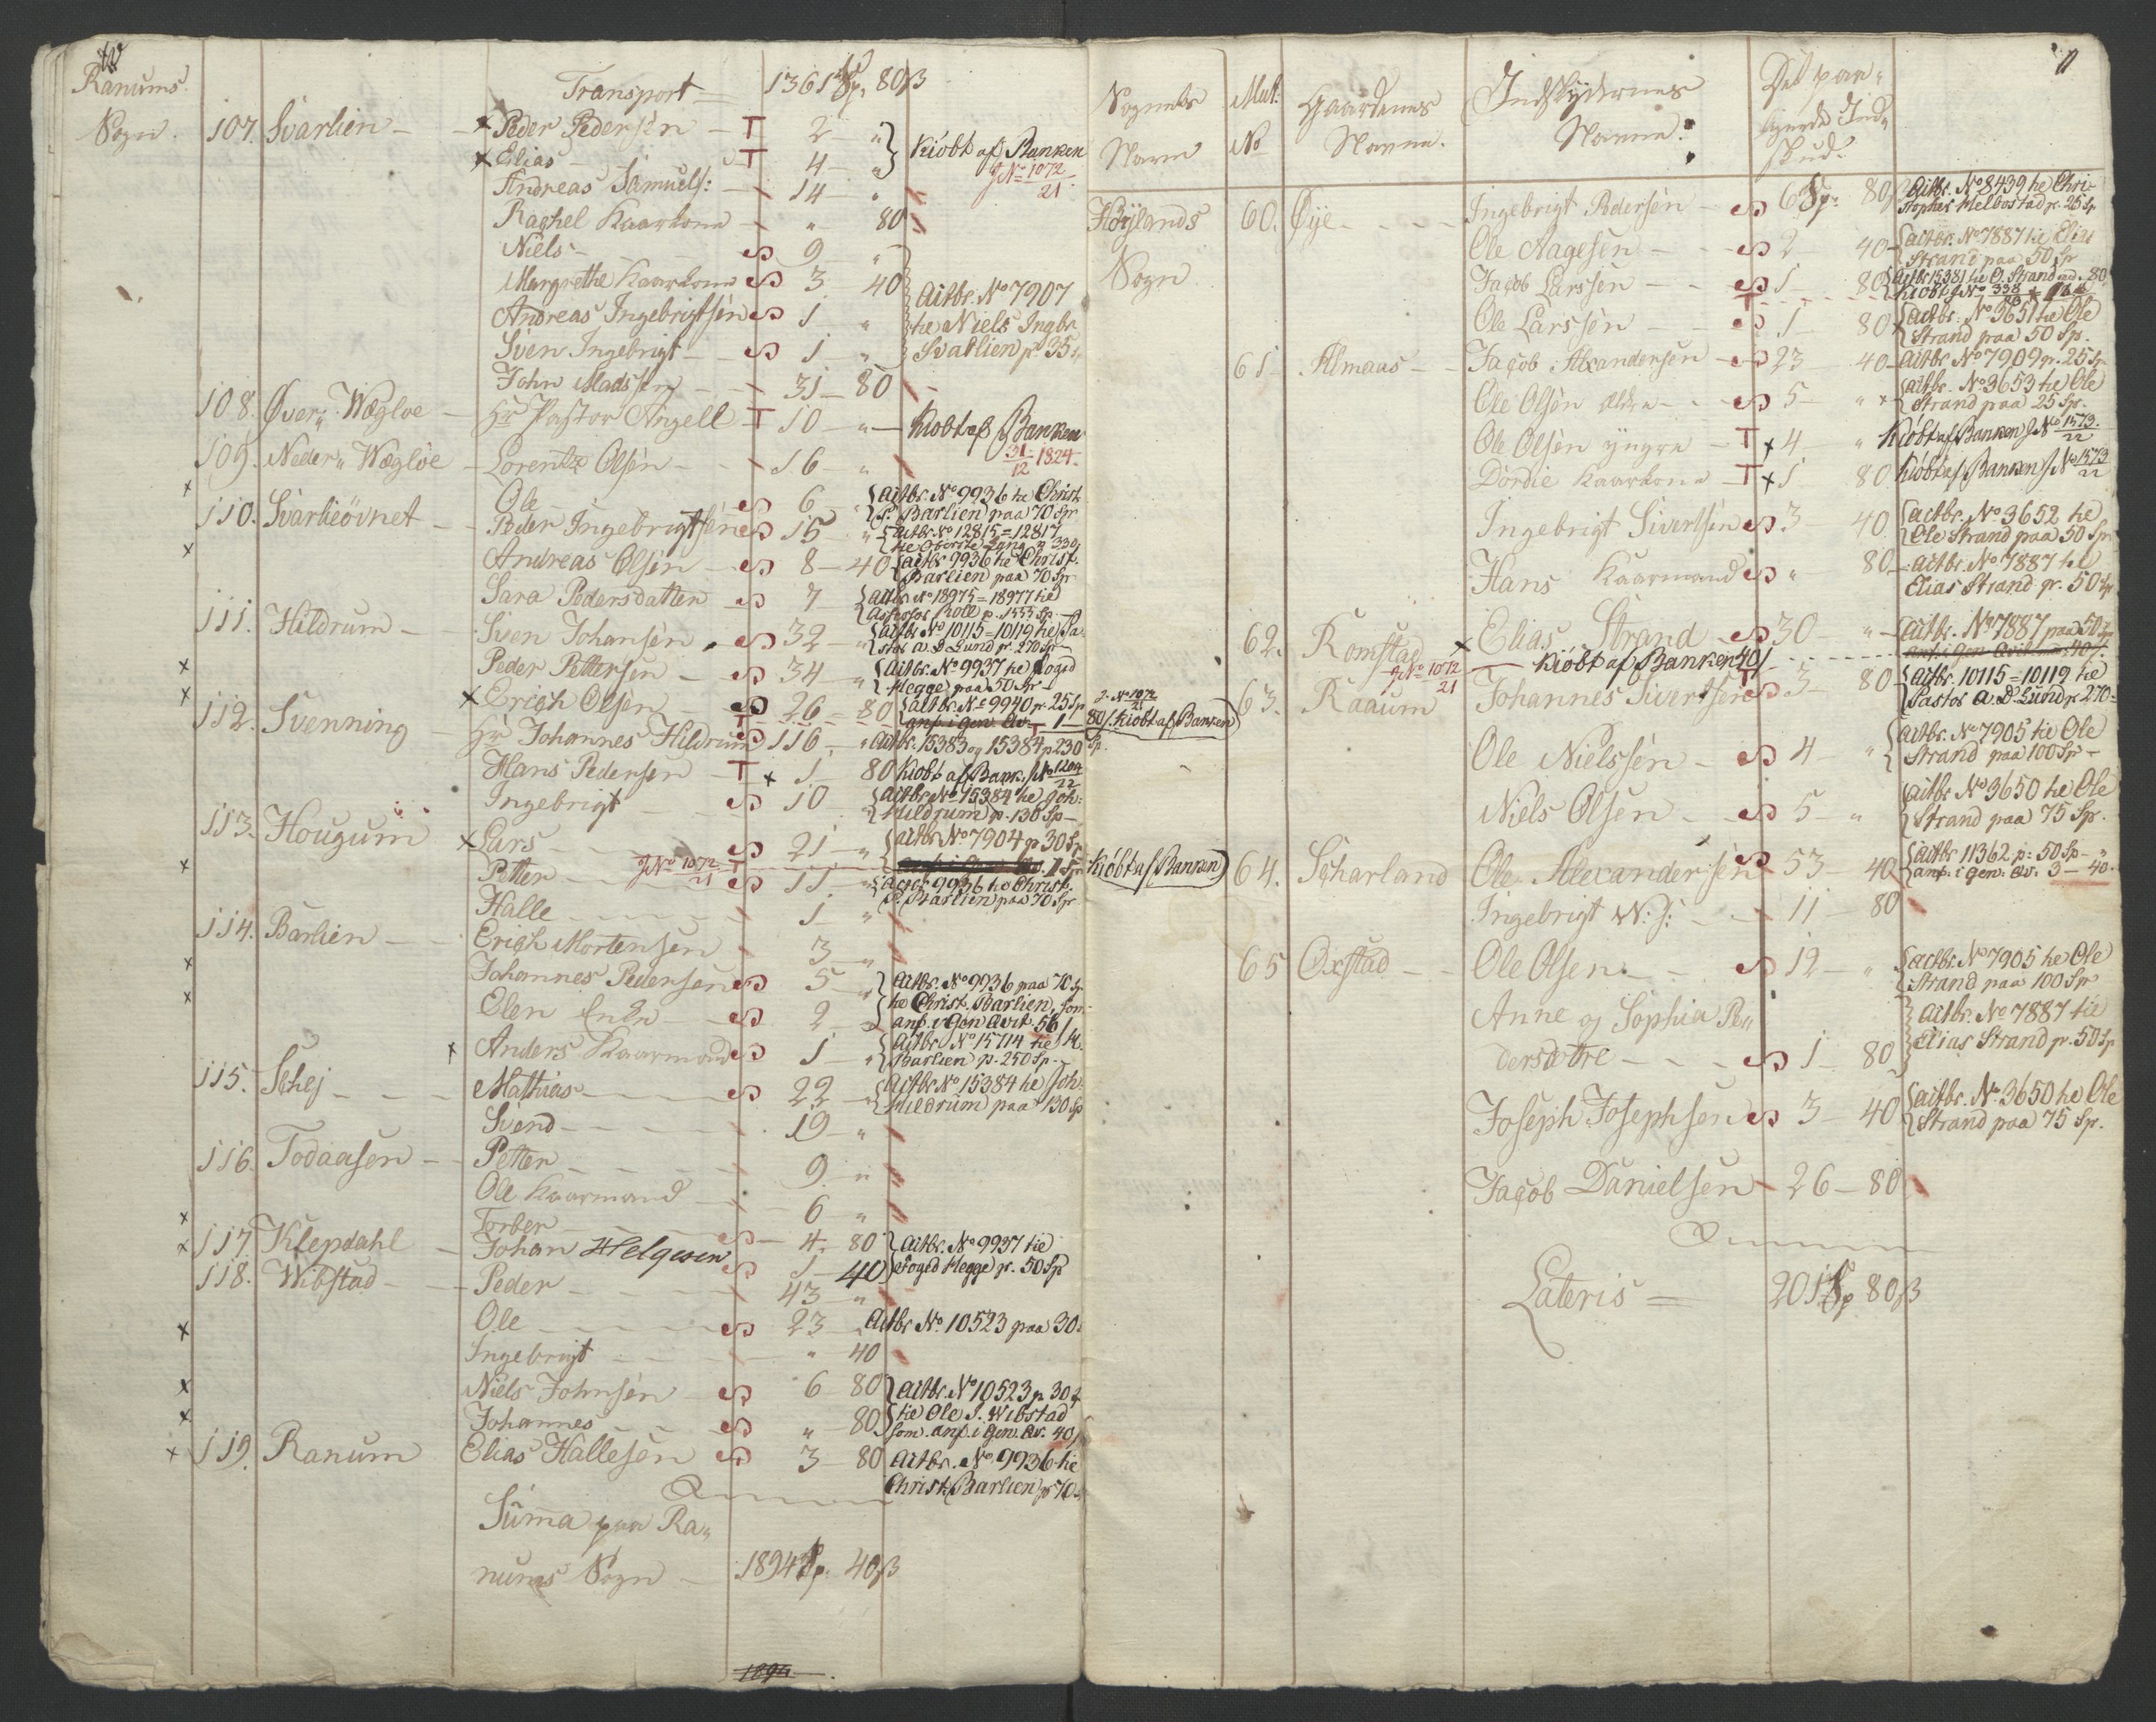 Ranums
Sogn.
Transport = 1361 Sp. 80 ß
107. Svarlien – Peder Pedersen – T 2 „
Elias – T 4 – „ Kiöbt af Banken
J No 1072/21
Andreas Samuels: – 14 – „
Raghel Kaarkone – „ 80
Niels – 9 – „
Margrethe Kaarkone 3 40
Andreas Ingebrigtsen 1 „
Sven Ingebrigt – 1 – „
Actbr. No 7907
tie Niels Ingbr.
Svarlien p. 35
John Madssen – 31 – 80
108. Över„ Wægloe – Hr Pastor Angell – T 10 – „ – Kiobt af Banken
31/12 1824.
109. Neder„ Wægloe – Lorentz Olsen – 16 – „
110. Svarlieövnet – Ole – 6 „ Actbr. No 9936 tie Christ.
P. Barlien paa 70 Sp
Peder Ingebrigtsen 15 „ Actbr. No 12815 = 12817
Andreas Olsen – 8 – 40 Actbr 9936 tie Christ.
Barlien paa 70 Sp
Sara Pedersdatter – 7 – Actbr No 18975 = 18977 tie
Assessor Roll p. 1555 Sp.
111. Hildrum – Sven Johansen – 32 – „ Actbr No 10115 = 10119 tie Pa-
stor A. D Lund p. 270 Sp –
Peder Pettersen – 34 – „ Actbr. No 9937 tie Foged
Hegge paa 50 Sp –
112. Svenning Erich Olsen – 26 – 80 Actbr. No 9940 p. 25 Sp
anf. i gen. Qv. 1 – 80 ß. Kiobt af Banken
J. No 1072/21
Hr Johannes Hildrum 116 – „ Actbr. 15383 og 15384 p 230 Sp.
Hans Pedersen – T 1 80 Kiobt af Bank. J No 1204/22
Ingebrigt – 10 Actbr No 15384 tie Joh:
Hildrum p. 130 Sp –
113. Hougum Lars – 21 – „ Actbr No 7904 p 30 Sp
Kiöbt af Banken
Petter J No 1072/21 T 11 – „ Actbr 9936 tie Christ.
P. Barlien paa 70 Sp
Halle – 1 „
114. Barlien – Erich Mortensen 3 – „
Johannes Pedersen 5 – „ Actbr. No 9936 paa 70 Sp
tie Christ. Barlien, som
Elen Enke – 2 – anf. i Gen Qvit. 56 ß
Anders Kaarmand 1 – „ Actbr No 15714 tie H.
Barlien p. 250 Sp –
115. Schej – Mathias – 22 – „ Actbr No 15384 tie Joh:
Hildrum paa 130 Sp
Svend – 19 – „
116. Todaasen – Petter – 9. „
Ole Kaarmand – 6 „
Torber – 4. 80 Actbr. No 9937 tie
117. Klepdahl – Johan Helgesen 1 40 Foged Hegge p. 50 Sp
118. Wibstad – Peder – 43 „
Ole – 23 Actbr No 10523 paa 30
Ingebrigt – „ 40
Niels Johnsen – 6 80 Actbr. No 10523 p 30 Sp
Johannes – „ 80 tie Ole J. Wibstad
som. anf. i Gen. Qv. 40 ß
119. Ranum Elias Hallesen 3 – 80 Actbr. No 9936 tie
Christ. Barlien p 70
Summa paa Ra„
nums Sogn – 1894 Sp. 40 ß
1894
11
Sognets Navn
Mat: No
Gaardenes Navne.
Indskydernes Navne.
Det paa„ Ind„ skud.
Höylands
Sogn
60. Øye – Ingebrigt Pedersen – 6 Sp. 80 ß Actbr. No 8439 tie Chri-
stopher Melbostad p. 25 Sp
Ole Aagesen – 2 – 40 – Actbr. No 7887 tie Elias
Strand paa 50 Sp
Jacob Larssen – 1 – 80 Actbr 15381 tie O. Strand
Ole Larssen – 1 – 80 Actbr. No 3651 tie Ole
Strand paa 50 Sp.
61. Almaas – Jacob Alexandersen – 23 40 – Actbr. No 7909 p. 25 Sp
Ole Olsen Ældre – 5 – „ Actbr. No 3653 tie Ole
Strand paa 25 Sp.
Ole Olsen yngre – T 4 „ Kiobt af Banken J No 1573/22
Dordie Kaarkone – T 1 80 Kiöbt af Banken J No 1573/22
Ingebrigt Sivertsen 3 – 40 Actbr. No 3652 tie
Ole Strand paa 50 Sp
Hans Kaarmand „ 80 – Actbr. No 7887 tie
Elias Strand p. 50 Sp
62. Romstad Elias Strand – 30 „ – Actbr. No 7887 paa 50 Sp
J No 1072/21 – Kiöbt af Banken 40 ß
63. Raaum Johannes Sivertsen 3 – 80 Actbr. 10115 = 10119 tie
Pastor A. D. Lund p 270 –
Ole Nielssen – 4 – „ Actbr. No 7905 tie Ole
Strand paa 100 Sp –
Niels Olsen – 5 – „ Actbr No 3650 tie Ole
Strand paa 75 Sp.
64. Scharland Ole Alexandersen 53 – 40 Actbr 11362 p: 50 Sp – „
anf. i gen. Qv. 3 – 40 –
Ingebrigt N: S: – 11 – 80
65 Oxstad – Ole Olsen – 12 – „ Actbr. No 7905 tie Ole
Strand paa 100 Sp
Anne og Sophia Pe„
dersdøtre – 1 – 80 Actbr. No 7887 tie
Elias Strand p. 50 Sp
Joseph Josephsen 3 – 40 Actbr. No 3650 tie Ole
Strand paa 75 Sp.
Jacob Danielsen – 26 – 80
Lateris = 201 Sp 80 ß